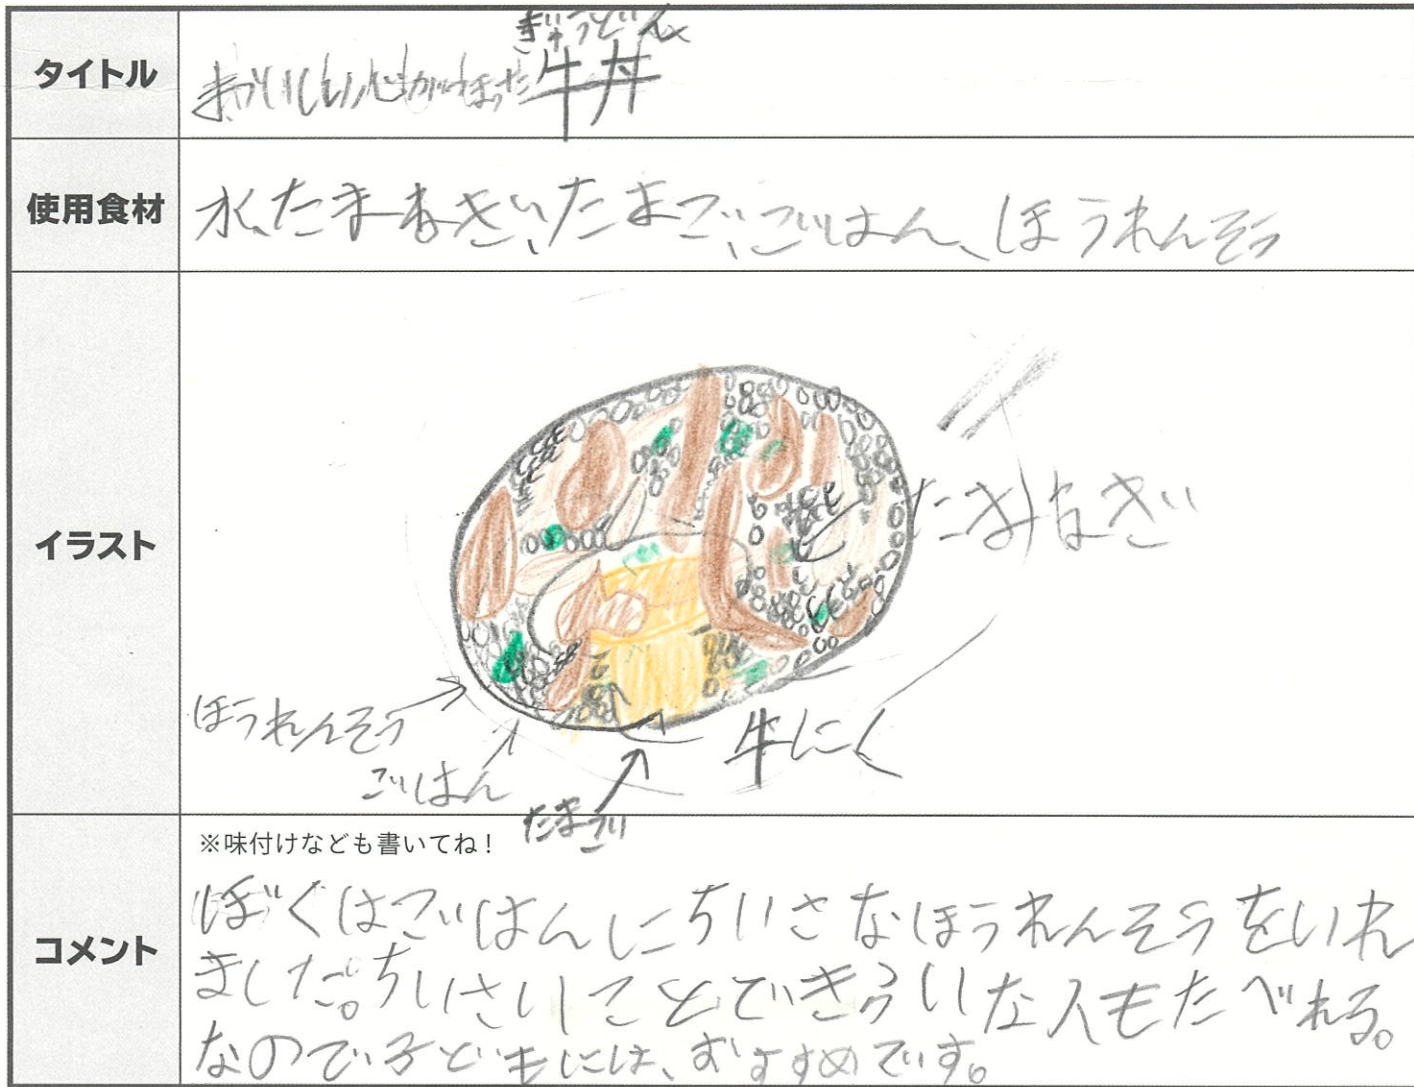 タイトル
ぎゅうどん
牛丼
使用食材
水、たまねぎ、たまご、ごはん、ほうれんそう
イラスト
たまねぎ
ほうれんそう
ごはん
たまご
牛にく
コメント
※味付けなども書いてね！
ぼくはごはんにちいさなほうれんそうをいれ
ました。ちいさいことできらいな人もたべれる。
なので子どもには、おすすめです。